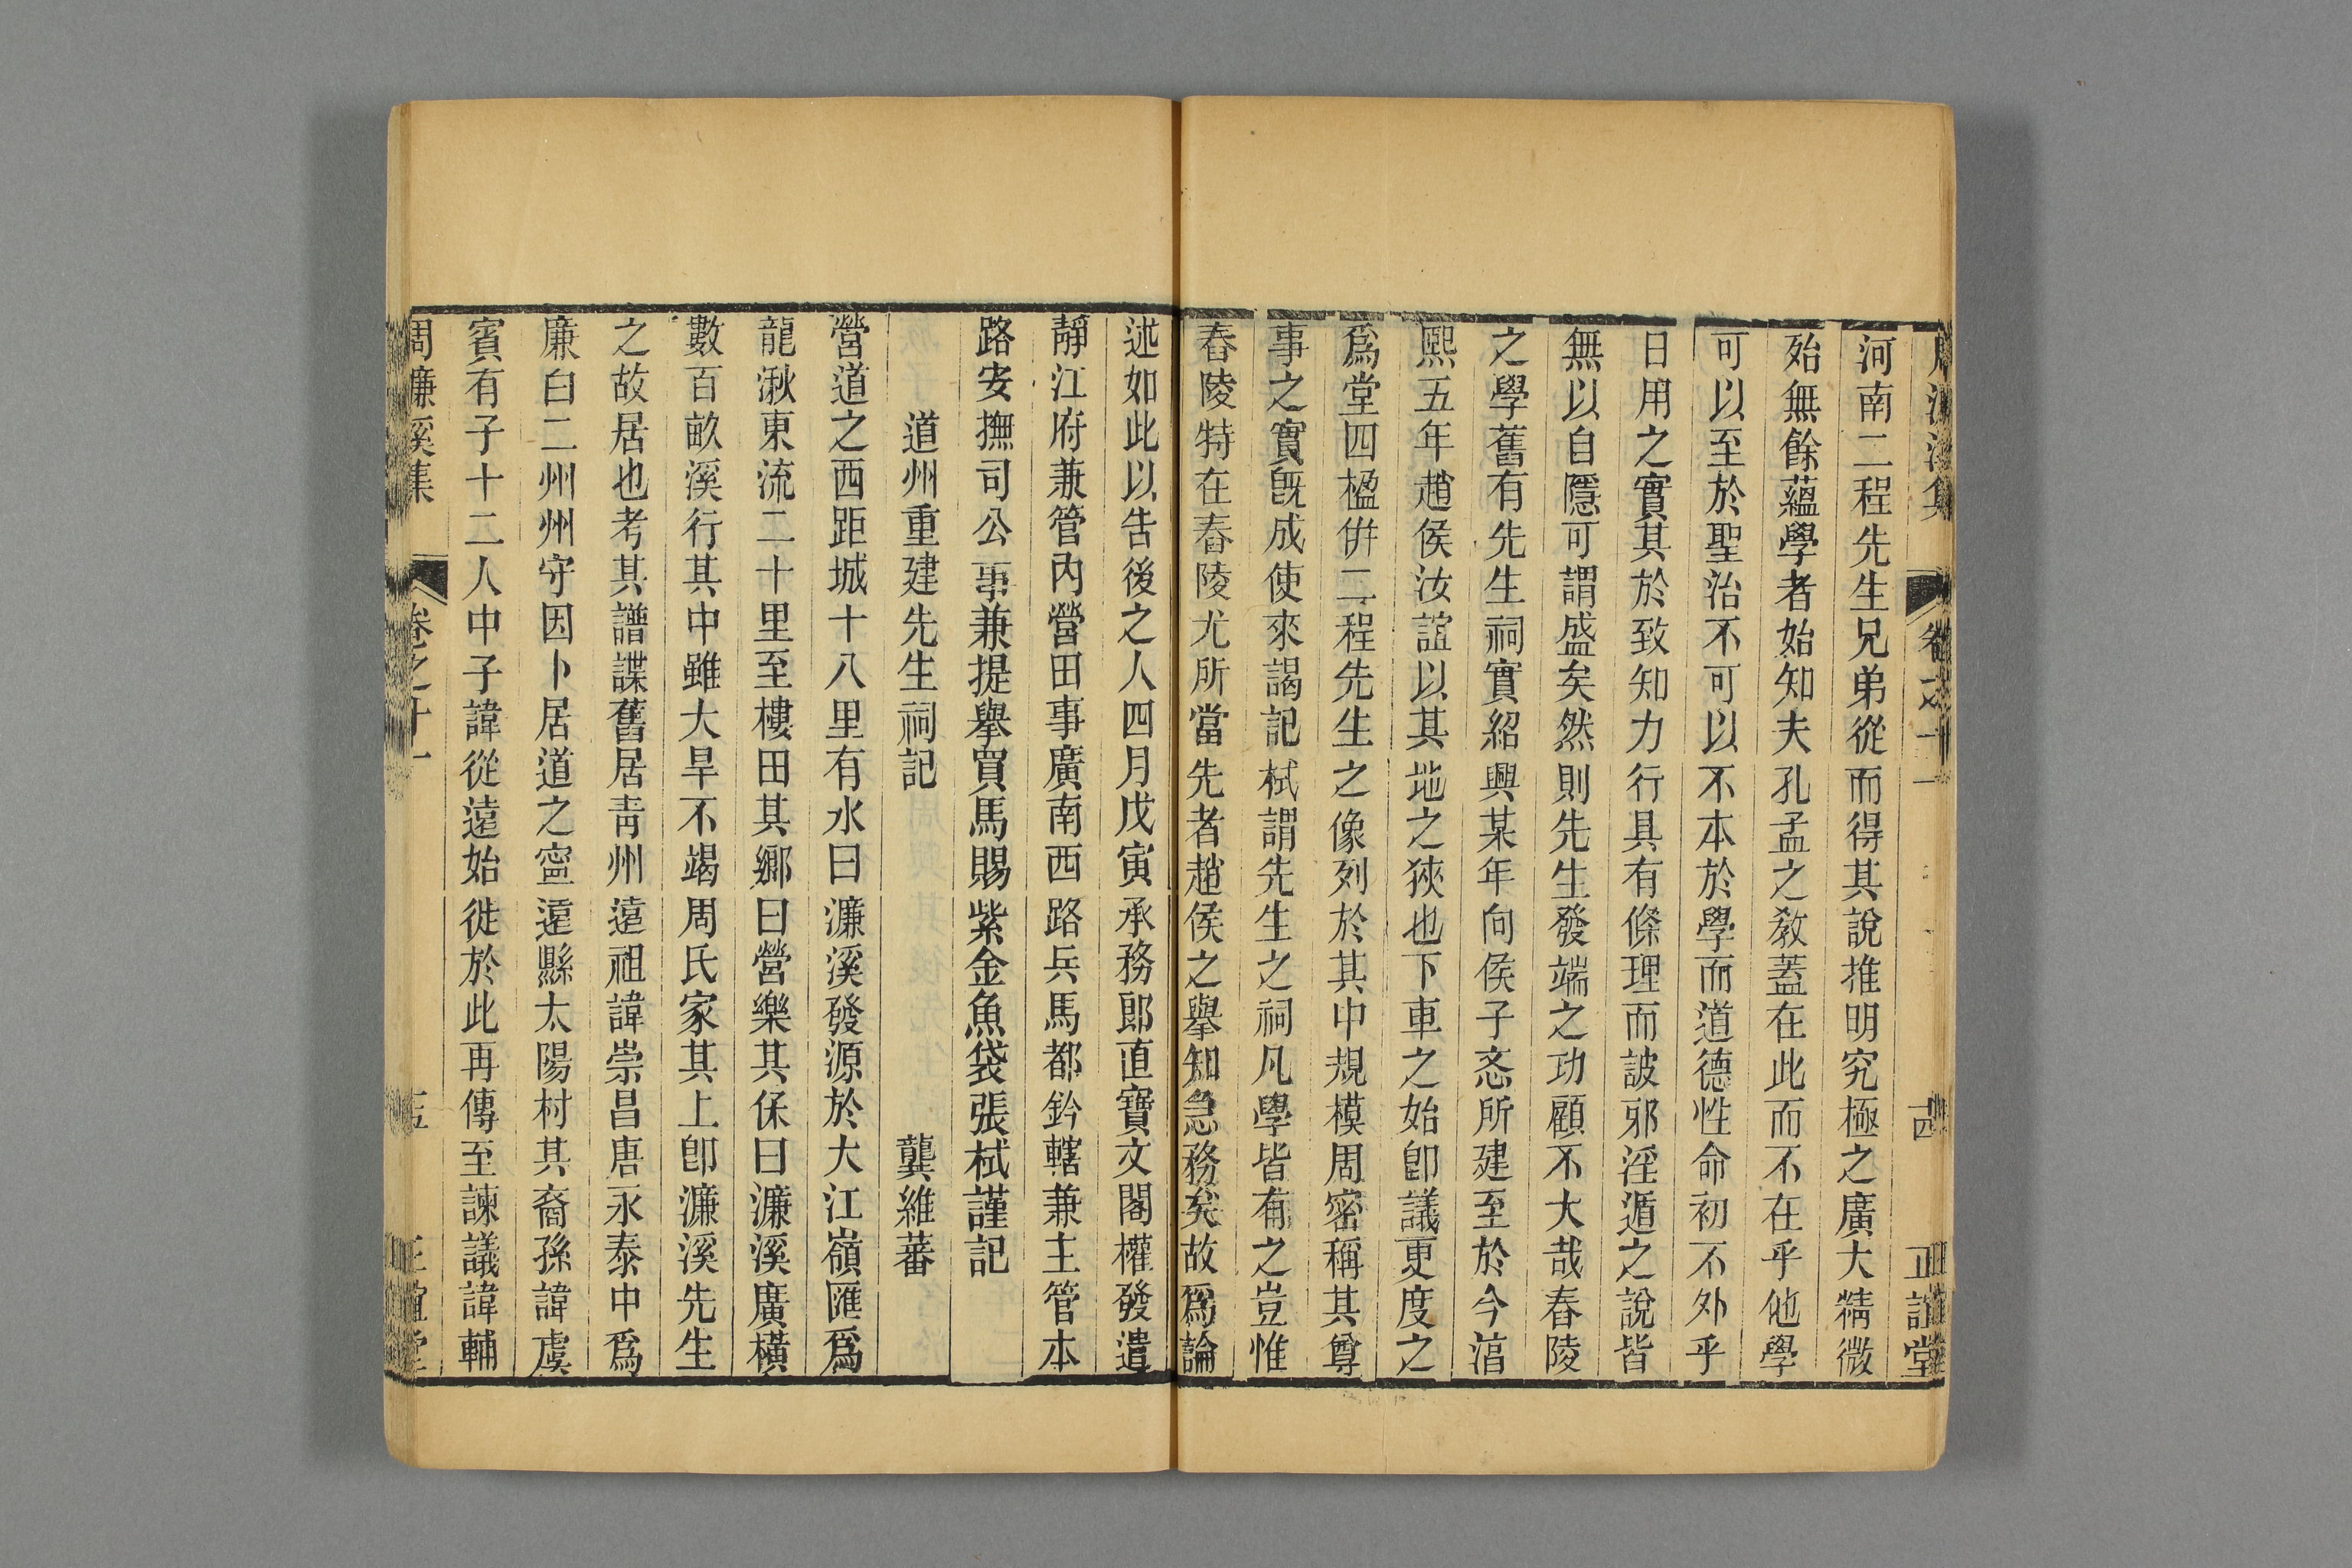 河南二程先生兄弟從而得其說推明究極之廣大精微
殆無餘蘊學者始知夫孔孟之敎蓋在此而不在乎他學
可以至於聖治不可以不本於學而道德性命初不外乎
日用之實其於致知力行具有條理而詖邪淫遁之說皆
無以自隱可謂盛矣然則先生發端之功顧不大哉舂陵
之學舊有先生祠實紹興某年向侯子忞所建至於今淳
熙五年趙侯汝誼以其地之狹也下車之始卽議更度之
爲堂四楹倂二程先生之像列於其中規模周密稱其尊
事之實旣成使來謁記栻謂先生之祠凡學皆有之豈惟
舂陵特在舂陵尤所當先者趙侯之擧知急務矣故爲論
述如此以告後之人四月戊寅承務郎直寶文閣權發遣
靜江府兼管內營田事廣南西路兵馬都鈐轄兼主管本
路安撫司公事兼提擧買馬賜紫金魚袋張栻謹記
道州重建先生祠記
龔維蕃
營道之西距城十八里有水曰濂溪發源於大江嶺匯爲
龍湫東流二十里至樓田其鄉曰營樂其保曰濂溪廣橫
數百畝溪行其中雖大旱不竭周氏家其上卽濂溪先生
之故居也考其譜諜舊居靑州遠祖諱崇昌唐永泰中爲
廉白二州州守因卜居道之寍遠縣太陽村其裔孫諱虞
賓有子十二人中子諱從遠始徙於此再傳至諫議諱輔
周濂溪集
卷之十一
正誼堂